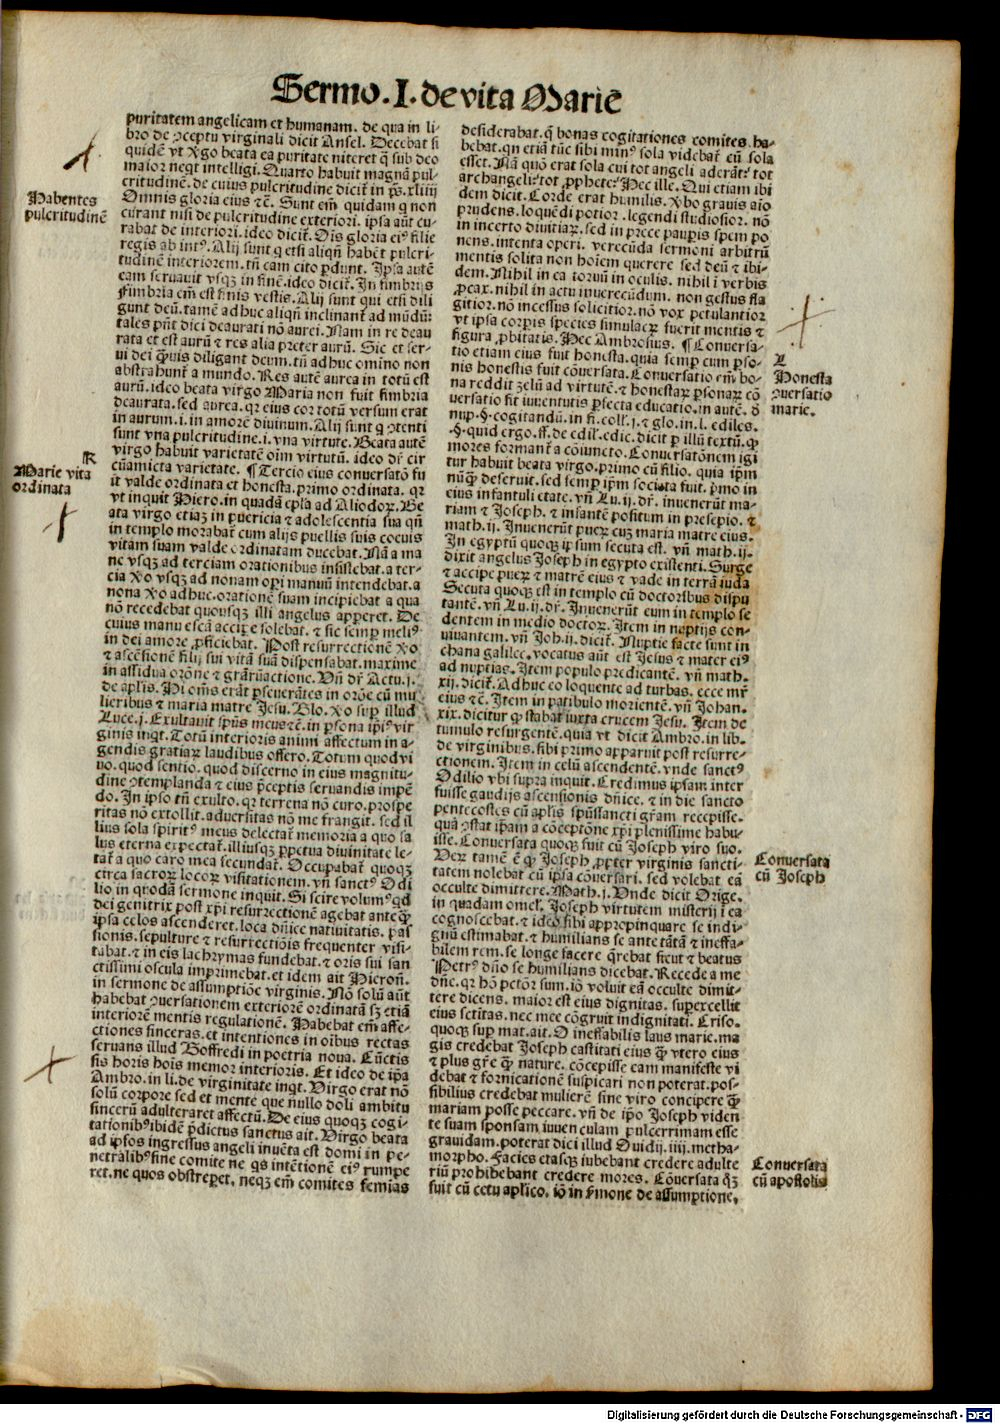 Sermo.I.de vita Marie
puritatem angelicam et humanam. de qua in li-
bro de ꝯceptu virginali dicit Ansel. Decebat si
quidē vt ꟟go beata ea puritate niteret q̄ sub deo
maior neqt intelligi. Quarto habuit magnā pul-
critudinē. de cuius pulcritudine dicit̄ in ps. xliiij
Omnis gloria eius ⁊c̄. Sunt em̄ quidam q non
curant nisi de pulcritudine exteriori. ipsa aūt cu-
rabat de interiori. ideo dicit̄. Ois gloria eiꝰ filie
regis ab intꝰ. Alij sunt q etsi aliqn̄ habēt pulcri-
tudinē interiorem. tn̄ eam cito ꝑdunt. Ipsa autē
eam seruauit vsqꝫ in finē. ideo dicit̄. In fimbrijs
Fimbria em̄ est finis vestis. Alij sunt qui etsi dili
gunt deū. tamē adhuc aliqn̄ inclinant̄ ad mūdū:
tales pn̄t dici deaurati nō aurei. Nam in re deau
rata et est aurū ⁊ res alia preter aurū. Sic et ser-
ui dei qͣuis diligant deum. tn̄ adhuc omino non
abstrahunt̄ a mundo. Res autē aurea in totū est
aurū. ideo beata virgo Maria non fuit fimbria
deaurata. sed aurea. qr eius cor totū versum erat
in aurum .i. in amorē diuinum. Alij sunt q ꝯtenti
sunt vna pulcritudine .i. vna virtute. Beata autē
virgo habuit varietatē oīm virtutū. ideo dr̄ cir
cūamicta varietate. ¶ Tercio eius conuersatō fu
it valde ordinata et honesta. primo ordinata. qr
vt inquit Hiero. in quadā epla ad Aliodoꝝ. Be
ata virgo etiaꝫ in puericia ⁊ adolescentia sua qn̄
in templo morabat̄ cum alijs puellis suis coeuis
vitam suam valde ordinatam ducebat. Nā a ma
ne vsqꝫ ad terciam orationibus insistebat. a ter-
cia ꟟o vsqꝫ ad nonam oꝑi manuū intendebat. a
nona ꟟o adhuc orationē suam incipiebat a qua
nō recedebat quousqꝫ illi angelus apperet. De
cuius manu escā acciꝑe solebat. ⁊ sic semꝑ meliꝰ
in dei amore ꝓficiebat. Post resurrectionē ꟟o
⁊ ascēsionē filij sui vitā suā dispensabat. maxime
in assidua orōne ⁊ gr̄arūactione. Vn̄ dr̄ Actu. j.
de aplis. Hi oms̄ erāt ꝑseuerātes in orōe cū mu
lieribus ⁊ maria matre Jesu. Glo. ꟟o suꝑ illud
Luce. j. Exultauit spūs meus ⁊c̄. in ꝑsona ip̄iꝰ vir
ginis inqt. Totū interioris animi affectum in a-
gendis gratiaꝝ laudibus offero. Totum quod vi
uo. quod sentio. quod discerno in eius magnitu-
dine ꝯtemplanda ⁊ eius p̄ceptis seruandis impē
do. In ipso tn̄ exulto. qr terrena nō curo. prospe
ritas nō extollit. aduersitas nō me frangit. sed il
lius sola spiritꝰ meus delectat̄ memoria a quo sa
lus eterna expectat̄. illiusqꝫ ꝑpetua diuinitate le-
tat̄ a quo caro mea fecundat̄. Occupabat̄ quoqꝫ
circa sacroꝝ locoꝝ visitationem. vn̄ sanctꝰ Odi
lio in quodā sermone inquit. Si scire volumꝰ qd
dei genitrix post xp̄i resurrectionē agebat anteqͣꝫ
ipsa celos ascenderet. loca dn̄ice natiuitatis. pas
sionis. sepulture ⁊ resurrectiōis frequenter visi-
tabat. ⁊ in eis lachrymas fundebat. ⁊ oris sui san
ctissimi oscula imprimebat. et idem ait Hieron̄.
in sermone de assumptiōe virginis. Nō solū aūt
habebat ꝯuersationem exteriorē ordinatā sꝫ etiā
interiorē mentis regulationē. Habebat em̄ affe-
ctiones sinceras. et intentiones in oībus rectas
seruans illud Goffredi in poetria noua. Cūctis
sis horis hois memor interioris. Et ideo de ip̄a
Ambro. in li. de virginitate inqt. Virgo erat nō
solū corpore sed et mente que nullo doli ambitu
sincerū adulteraret affectū. De eius quoqꝫ cogi-
tationibꝰ ibidē p̄dictus sanctus ait. Virgo beata
ad ipsos ingressus angeli inuēta est domi in pe-
netralibꝰ sine comite ne qs intētionē eiꝰ rumpe
ret. ne quos obstreꝑet. neqꝫ em̄ comites femīas
desiderabat. q̄ bonas cogitationes comites ha-
bebat. qn etiā tūc sibi minꝰ sola videbat̄ cū sola
esset. Nā quō erat sola cui tot angeli aderāt: tot
archangeli: tot ꝓphete: Hec ille. Qui etiam ibi
dem dicit. Corde erat humilis. ꟟bo grauis aīo
prudens. loquēdi potior. legendi studiosior. nō
in incerto diuitiaꝝ. sed in prece pauꝑis spem po
nens. intenta operi. verecūda sermoni arbitrū
mentis solita non hoīem querere sed deū ⁊ ibi-
dem. Nihil in ea toruū in oculis. nihil ī verbis
ꝓcax. nihil in actu inuerecūdum. non gestus fla
gitior. nō incessus solicitior. nō vox petulantior
vt ipsa corꝑis species simulacꝝ fuerit mentis ⁊
figura ꝓbitatis. Hec Ambrosius. ¶ Conuersa-
tio etiam eius fuit honesta. quia semꝑ cum ꝑso-
nis honestis fuit cōuersata. Conuersatio em̄ bo-
na reddit zelū ad virtutē. ⁊ honestaꝝ ꝑsonaꝝ cō
uersatio fit iuuentutis ꝑfecta educatio. in autē. ď
nup. §. cogitandū. in fi. coll. j. ⁊ glo. in. l. ediles.
.§. quid ergo. ff. de edil. edic. dicit ꝑ illū textū. ꝙ
mores formant̄ a cōiuncto. Conuersatōnem igi
tur habuit beata virgo. primo cū filio. quia ip̄m
nūqͣꝫ deseruit. sed semꝑ ip̄m sociata fuit. p̄mo in
eius infantuli etate. vn̄ Lu. ij. dr̄. inuenerūt ma-
riam ⁊ Joseph. ⁊ infantē positum in presepio. ⁊
math. ij. Inuenerūt pueꝝ cuꝫ maria matre eius.
In egyptū quoqꝫ ip̄sum secuta est. vn̄ math. ij.
dixit angelus Joseph in egypto existenti. Surge
⁊ accipe pueꝝ ⁊ matrē eius ⁊ vade in terrā iuda
Secuta quoqꝫ est in templo cū doctoribus dispu
tantē. vn̄ Lu. ij. dr̄. Inuenerūt eum in templo se
dentem in medio doctoꝝ. Item in nuptijs con-
uiuantem. vn̄ Joh. ij. dicit̄. Nuptie facte sunt in
chana galilee. vocatus aūt est Jesus ⁊ mater eiꝰ
ad nuptias. Item populo predicantē. vn̄ math.
xij. dicit̄. Adhuc eo loquente ad turbas. ecce mr̄
eius ⁊c̄. Item in patibulo morientē. vn̄ Johan.
xix. dicitur ꝙ stabat iuxta crucem Jesu. Item de
tumulo resurgentē. quia vt dicit Ambro. in lib.
de virginibus. sibi primo apparuit post resurre-
ctionem. Item in celū ascendentē. vnde sanctꝰ
Odilio vbi supra inquit. Credimus ipsam inter
fuisse gaudijs ascensionis dn̄ice. ⁊ in die sancto
pentecostes cū aplis spūssancti gr̄am recepisse.
quā ꝯstat ip̄am a cōceptōne xp̄i plenissime habu-
isse. Conuersata quoqꝫ fuit cū Joseph viro suo.
Veꝝ tamē ē ꝙ Joseph ꝓpter virginis sancti-
tatem nolebat cū ipsa cōuersari. sed volebat eā
occulte dimittere. Math. j. Vnde dicit Orige.
in quadam omel. Joseph virtutem misterij ī ea
cognoscebat. ⁊ ideo sibi appropinquare se indi-
gnū estimabat. ⁊ humilians se ante tātā ⁊ ineffa-
bilem rem. se longe facere q̄rebat sicut ⁊ beatus
Petrꝰ dn̄o se humilians dicebat. Recede a me
dn̄e. qr hō pctōr sum. iō voluit eā occulte dimit-
tere dicens. maior est eius dignitas. suꝑexcellit
eius sctītas. nec mee cōgruit indignitati. Criso.
quoqꝫ suꝑ mat. ait. O ineffabilis laus marie. ma
gis credebat Joseph castitati eius qͣꝫ vtero eius
⁊ plus gr̄e qͣꝫ nature. cōcepisse eam manifeste vi
debat ⁊ fornicationē suspicari non poterat. pos-
sibilius credebat mulierē sine viro concipere qͣꝫ
mariam posse peccare. vn̄ de ip̄o Joseph viden
te suam sponsam iuuenculam pulcerrimam esse
grauidam. poterat dici illud Ouidij. iiij. metha-
morpho. Facies etasqꝫ iubebant credere adulte
riū prohibebant credere mores. Cōuersata qͦꝫ
fuit cū cetu aplico. iō in ẜmone de assumptione.
Habentes
pulcritudinē
K
Marie vita
ordinata
L
Honesta
ꝯuersatio
marie.
Conuersata
cū Joseph
Conuersata
cū apostolis
Digitalisierung gefördert durch die Deutsche Forschungsgemeinschaft - DFG